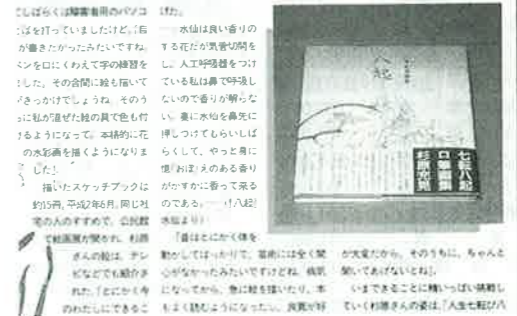 てしばらくは障害者用のパソコ
を打っていましたけど、「自
が書きたかったみたいですね。
ペンを口にくわえて字の練習を
ました。その合間に絵も描いて
がきっかけでしょうね。そのう
に私が混ぜた絵の具で色も付
けるようになって。本格的に花
の水彩画を描くようになりま
した」。
描いたスケッチブックは
約15冊。平成2年6月、同じ社
宅の人のすすめで、公民館
で絵画展が開かれ、杉原
さんの絵は、テレ
ビなどでも紹介さ
れた。「とにかく今
のわたしにできるこ
げた。
水仙は良い香りの
する花だが気管切開を
し、人工呼吸器をつけ
ている私は鼻で呼吸し
ないので香りが解らな
い。妻に水仙を鼻先に
押しつけてもらいしば
らくして、やっと鼻に
憶(おぼ)えのある香り
がかすかに香って来る
のである。(「八起」
水仙より)
「昔はとにかく体を
動かしてばっかりで、芸術には全く関
心がなかったみたいですけどね。病気
になってから、急に絵を描いたり、本
もよく読むようになったし。良寛が好
八起
七転八起
口筆画集
杉原充晃
が大変だから、そのうちに、ちゃんと
聞いてあげないとね」。
いまできることに精いっぱい挑戦し
ていく杉原さんの姿は、「人生七転び八